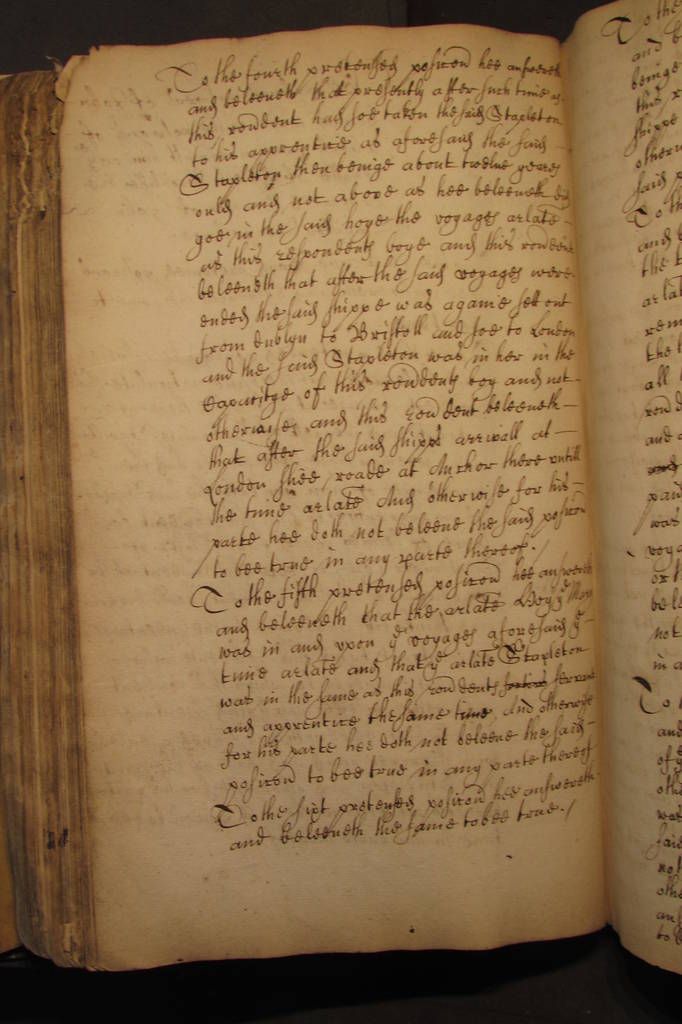 To the fourth pretensed posicon hee answereth
and beleeveth that presently after such time as
this rondent had soe taken the said Stapleton
to his apprentice as aforesaid the said
Stapleton then beinge about twelve yeares
ould and not above as hee beleeveth did
goe in the said hoye the voyages arlate
as this respondents boye and this rondent
beleeveth that after the said voyages were
ended the said shippe was againe sett out
from dublyn to Bristoll and soe to London
and the said Stapleton was in her in the
capacitye of this rondents boy and not
otherwise, and this rondent beleeveth
that after the said shipps arrivall at
London shee roade at Anchor there untill
the time arlate And otherwise for his
parte hee doth not beleeve the said posicon
to bee true in any parte thereof./
To the fifth pretensed posicon hee answereth
and beleeveth that the arlate Hoy ye Mary
was in and upon ye voyages aforesaid ye
time arlate and that ye arlate Stapleton
was in the same as this rondents servant
and apprentice the same time, And otherwise
for his parte hee doth not beleeve the said
posicon to bee true in any parte thereof
To the sixt pretensed posicon hee answereth
and beleeveth the same to bee true./
To the
and
beinge
this r
shippe
otherw
said p
To th
and b
the t
arlat
rem
the l
all
rond
and
paid
was
voya
or th
bele
not
in a
To t
and
of y
oth
was
said
not
othe
an
to b